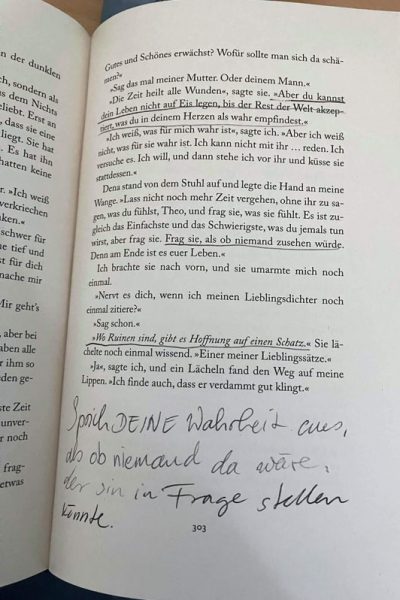 n der dunklen
ch, sondern als
dem Nichts
eliebt. Erst an
, dass sie eine
liegt. Sie hat
. Es hat ihn
hatten keine
r. »Ich weiß
verkriechen
nken.«
schwer für
me tief und
st für dich
nache mir
Mir geht's
, aber bei
aben alle
r ihm so
den ge-
ste Zeit
unver-
er noch
frag-
etwas
Gutes und Schönes erwächst? Wofür sollte man sich da schä-
men?«
»Sag das mal meiner Mutter. Oder deinem Mann.«
»Die Zeit heilt alle Wunden«, sagte sie. »Aber du kannst
dein Leben nicht auf Eis legen, bis der Rest der Welt akzep-
tiert, was du in deinem Herzen als wahr empfindest.«
»Ich weiß, was für mich wahr ist«, sagte ich. »Aber ich weiß
nicht, was für sie wahr ist. Ich kann nicht mit ihr … reden. Ich
versuche es. Ich will, und dann stehe ich vor ihr und küsse sie
stattdessen.«
Dena stand von dem Stuhl auf und legte die Hand an meine
Wange. »Lass nicht noch mehr Zeit vergehen, ohne ihr zu sa-
gen, was du fühlst, Theo, und frag sie, was sie fühlt. Es ist zu-
gleich das Einfachste und das Schwierigste, was du jemals tun
wirst, aber frag sie. Frag sie, als ob niemand zusehen würde.
Denn am Ende ist es euer Leben.«
Ich brachte sie nach vorn, und sie umarmte mich noch
einmal.
»Nervt es dich, wenn ich meinen Lieblingsdichter noch
einmal zitiere?«
»Sag schon.«
»Wo Ruinen sind, gibt es Hoffnung auf einen Schatz.« Sie lä-
chelte noch einmal wissend. »Einer meiner Lieblingssätze.«
»Ja«, sagte ich, und ein Lächeln fand den Weg auf meine
Lippen. »Ich finde auch, dass er verdammt gut klingt.«
Sprich DEINE Wahrheit aus,
als ob niemand da wäre,
der sin in Frage stellen
könnte.
303